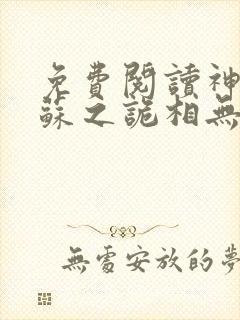 免費閱讀神
蘇之詭相無
無處安放的夢